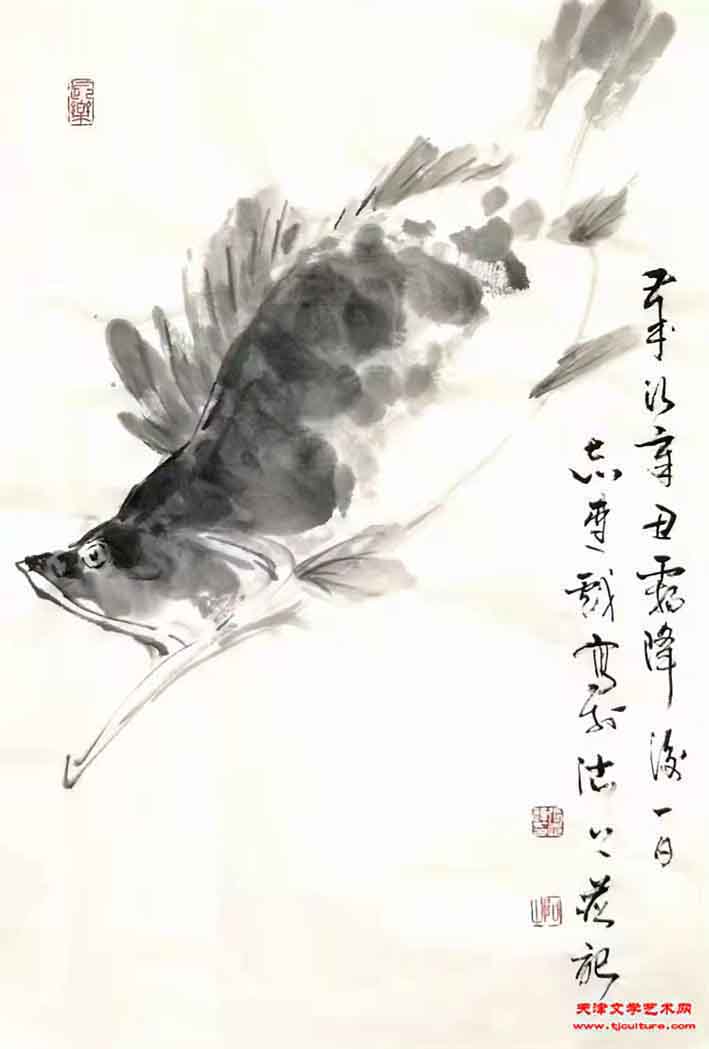 長樂
歲次辛丑霜降後一日
志 戲寫於沽上並記
天津文学艺术网
www.tjculture.com